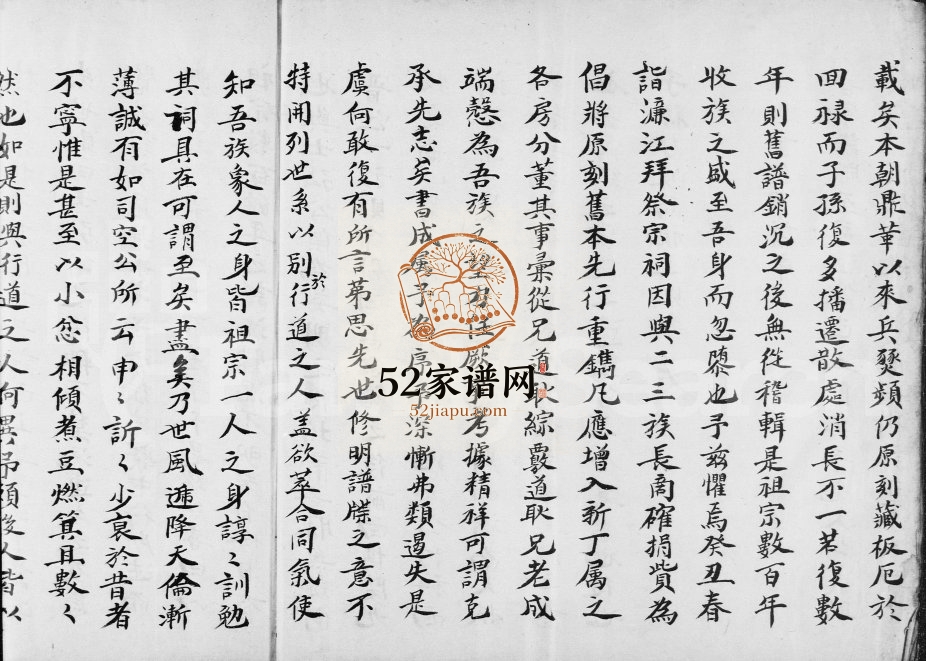 載矣本朝鼎革以來兵燹頻仍原刻藏板厄於
回祿而子孫復多播遷散處消長不一若復數
年則舊譜銷沉之後無從稽輯是祖宗數百年
收族之盛至吾身而忽隳也予茲懼焉癸丑春
詣濂江拜祭宗祠因與二三族長商確捐貲為
倡將原刻舊本先行重鐫凡應增入新丁属之
各房分董其事彙從兄道耿綜覈道耿兄老成
端愨為吾族之望力任厥考據精祥可謂克
承先志矣書成属予為序予深慚弗類遏失是
虞何敢復有所言第思先世修明譜牒之意不
特開列世系以別於行道之人盖欲萃合同氣使
知吾族象人之身皆祖宗一人之身諄〻訓勉
其祠具在可謂至矣盡矣乃世風遞降天倫漸
薄誠有如司空公所云申〻訢〻少衰於昔者
不寧惟是甚至以小忿相傾煮豆燃箕且數〻
然也如是則與行道之人何異吊領後人皆以
52家谱网
52jiapu.com